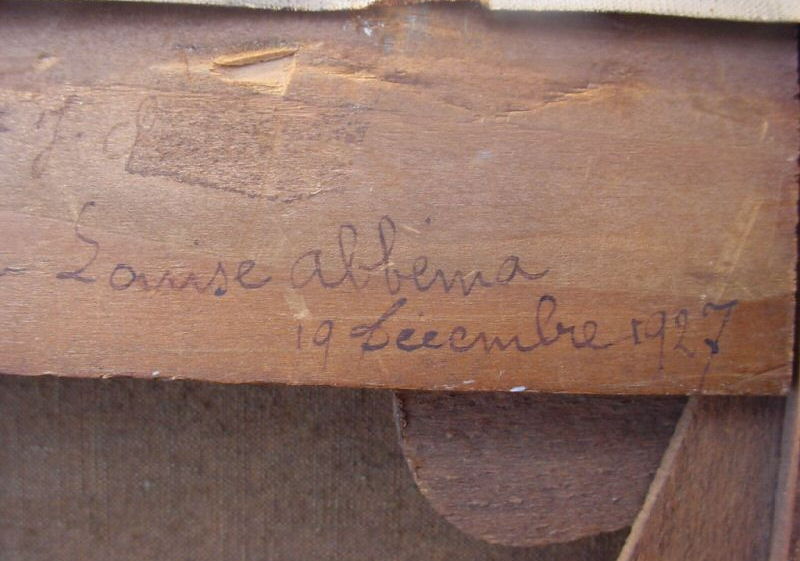 Louise Abbéma
19 Décembre 1927